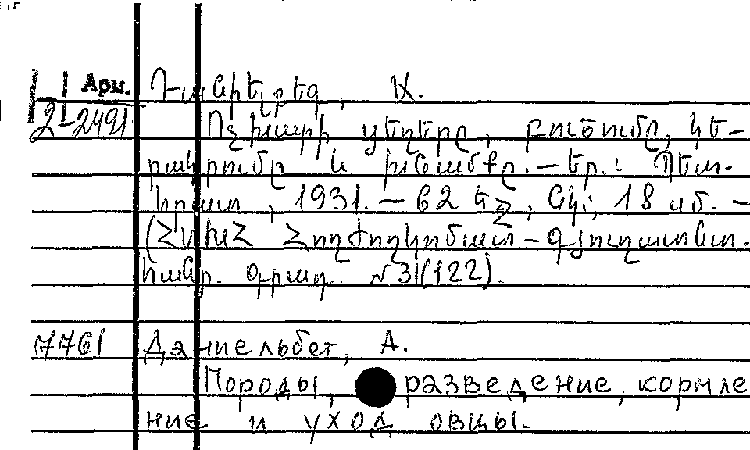 Арм. Դանիելբեգ, Ա.
2-2491 Ոչխարի ցեղերը, բուծումը, կե-
րակրումը և խնամքը.— Եր.: Պետ-
հրատ, 1931.— 62 եջ, նկ., 18 սմ.—
(ՀՍԽՀ Հողժողկոմատ - գյուղատնտ.
հանր. գրադ. №31(122).
7761 Даниельбег, А.
Породы, разведение, кормле
ние и уход овцы.